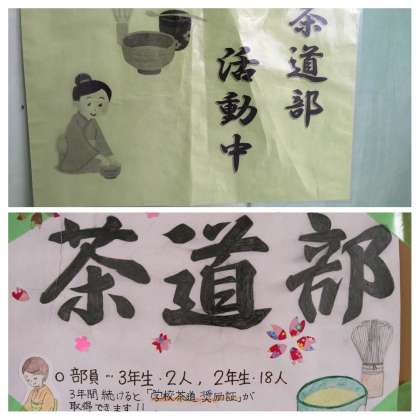 茶道部
活動中
茶道部
○部員…3年生・2人，2年生・18人
3年間続けると「学校茶道 奨励証」が
取得できます!!